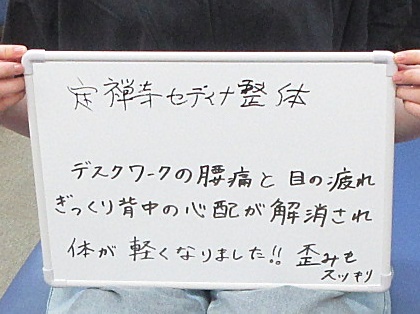 定禅寺セディナ整体
デスクワークの腰痛と目の疲れ
ぎっくり背中の心配が解消され
体が軽くなりました!! 歪みも
スッキリ